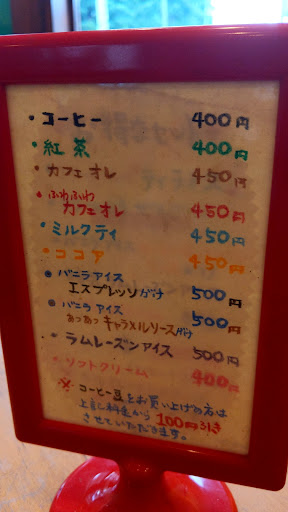 ・コーヒー 400円
・紅茶 400円
・カフェオレ 450円
・ふわふわ
カフェオレ 450円
・ミルクティ 450円
・ココア 450円
・バニラアイス
エスプレッソがけ 500円
・バニラアイス
あつあつキャラメルソースがけ 500円
・ラムレーズンアイス 500円
・ソフトクリーム 400円
※ コーヒー豆をお買い上げの方は
上記料金から100円引き
させていただきます。